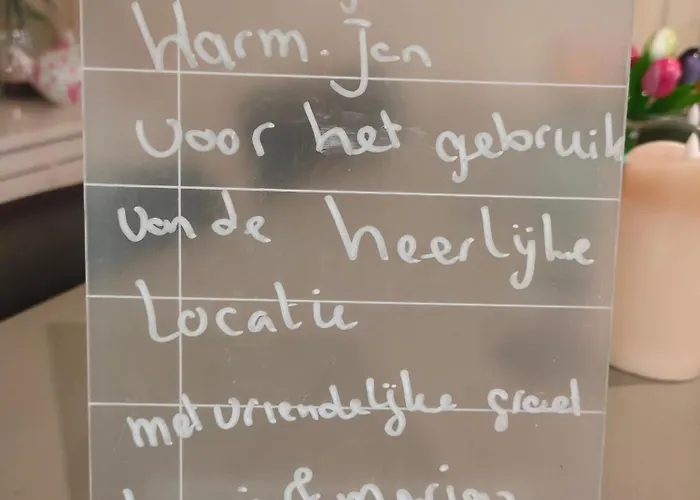 Harm-Jan
voor het gebruik
van de heerlijke
Locatie
met vriendelijke groet
&